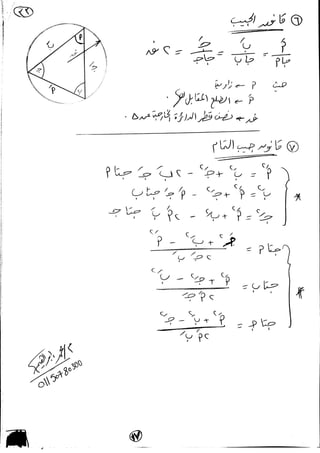 (٢٢)
⑥ قانون الجيب
أَ/جاA = بَ/جاب = جـَ/جاجـ = ٢ نق
حيث P ← زاوية
أَ ← الضلع المقابل لها
نق ← نصف قطر الدائرة الخارجة عن △
⑦ قانون جيب التمام
أَ² = بَ² + جـَ² - ٢ بَ جـَ جتاأ
بَ² = أَ² + جـَ² - ٢ أَ جـَ جتاب
جـَ² = أَ² + بَ² - ٢ أَ بَ جتاجـ
جتاأ = (جـَ² + بَ² - أَ²) / ٢ بَ جـَ
جتاب = (أَ² + جـَ² - بَ²) / ٢ أَ جـَ
جتاجـ = (أَ² + بَ² - جـَ²) / ٢ أَ بَ
01150780300
(١٧)